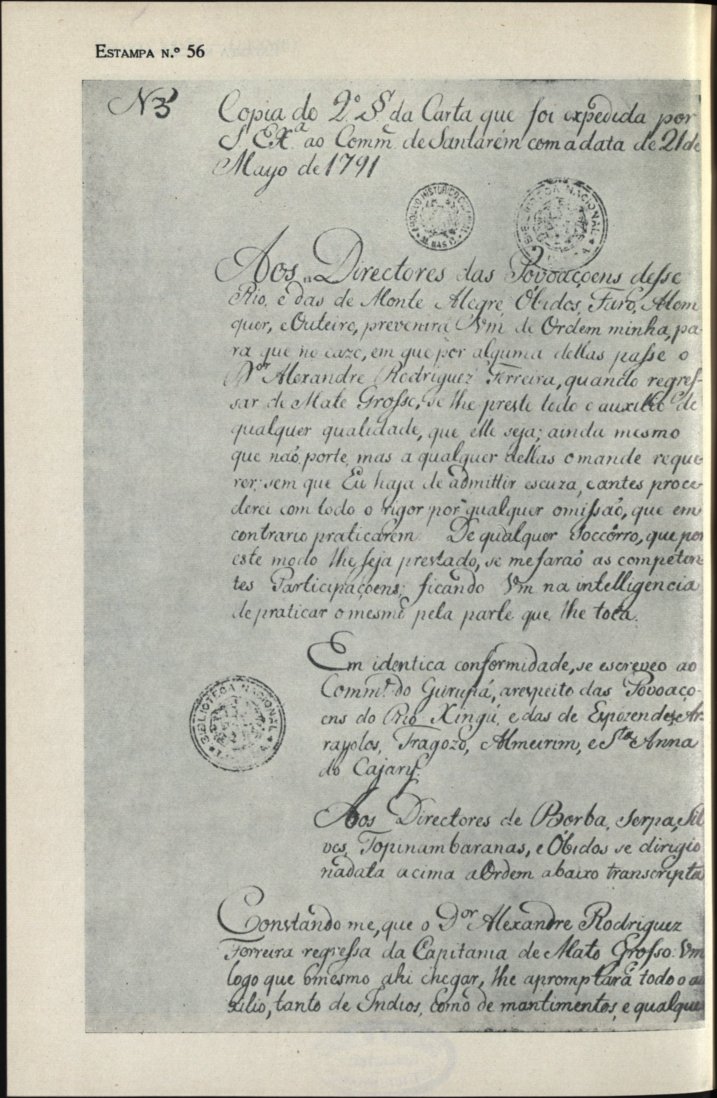 Estampa n.º 56
N3
Copia do 2.º § da Carta que foi expedida por
S Ex.ª ao Comm.e de Santarem com a data de 21 de
Mayo de 1791
BIBLIOTECA NACIONAL
Aos Directores das Povoaçoens desse
Rio, e das de Monte Alegre, Óbidos, Faro, Alem
quer, e Outeiro, prevenirá Vm de Ordem minha, pa-
ra que no cazo, em que por alguma dellas passe o
D.or Alexandre Rodriguez Ferreira, quando regres-
sar de Mato Grosso, se lhe preste todo o auxilio de
qualquer qualidade, que elle seja; ainda mesmo
que naõ porte, mas a qualquer dellas o mande reque-
rer; sem que Eu haja de admittir escuza, e antes proce-
derei com todo o rigor por qualquer omissaõ, que em
contrario praticarem. De qualquer Soccórro, que por
este modo lhe seja prestado, se me faraõ as competen-
tes Participaçoens; ficando Vm na intelligencia
de praticar o mesmo pela parte que lhe toca.
Em identica conformidade, se escreveo ao
Comm.te do Gurupá, a respeito das Povoaço-
ens do Rio Xingú, e das de Espozende, e Ar-
rayolos, Fragozo, Almeirim, e S.ta Anna
do Cajary.
BIBLIOTECA NACIONAL
Aos Directores de Borba, Serpa, Sil
ves, Topinambaranas, e Óbidos se dirigio
na data acima a Ordem abaixo transcripta
Constando me, que o D.or Alexandre Rodriguez
Ferreira regressa da Capitania de Mato Grosso: Vm
logo que o mesmo ahi chegar, lhe apromptará todo o au
xilio, tanto de Indios, como de mantimentos, e qualquer